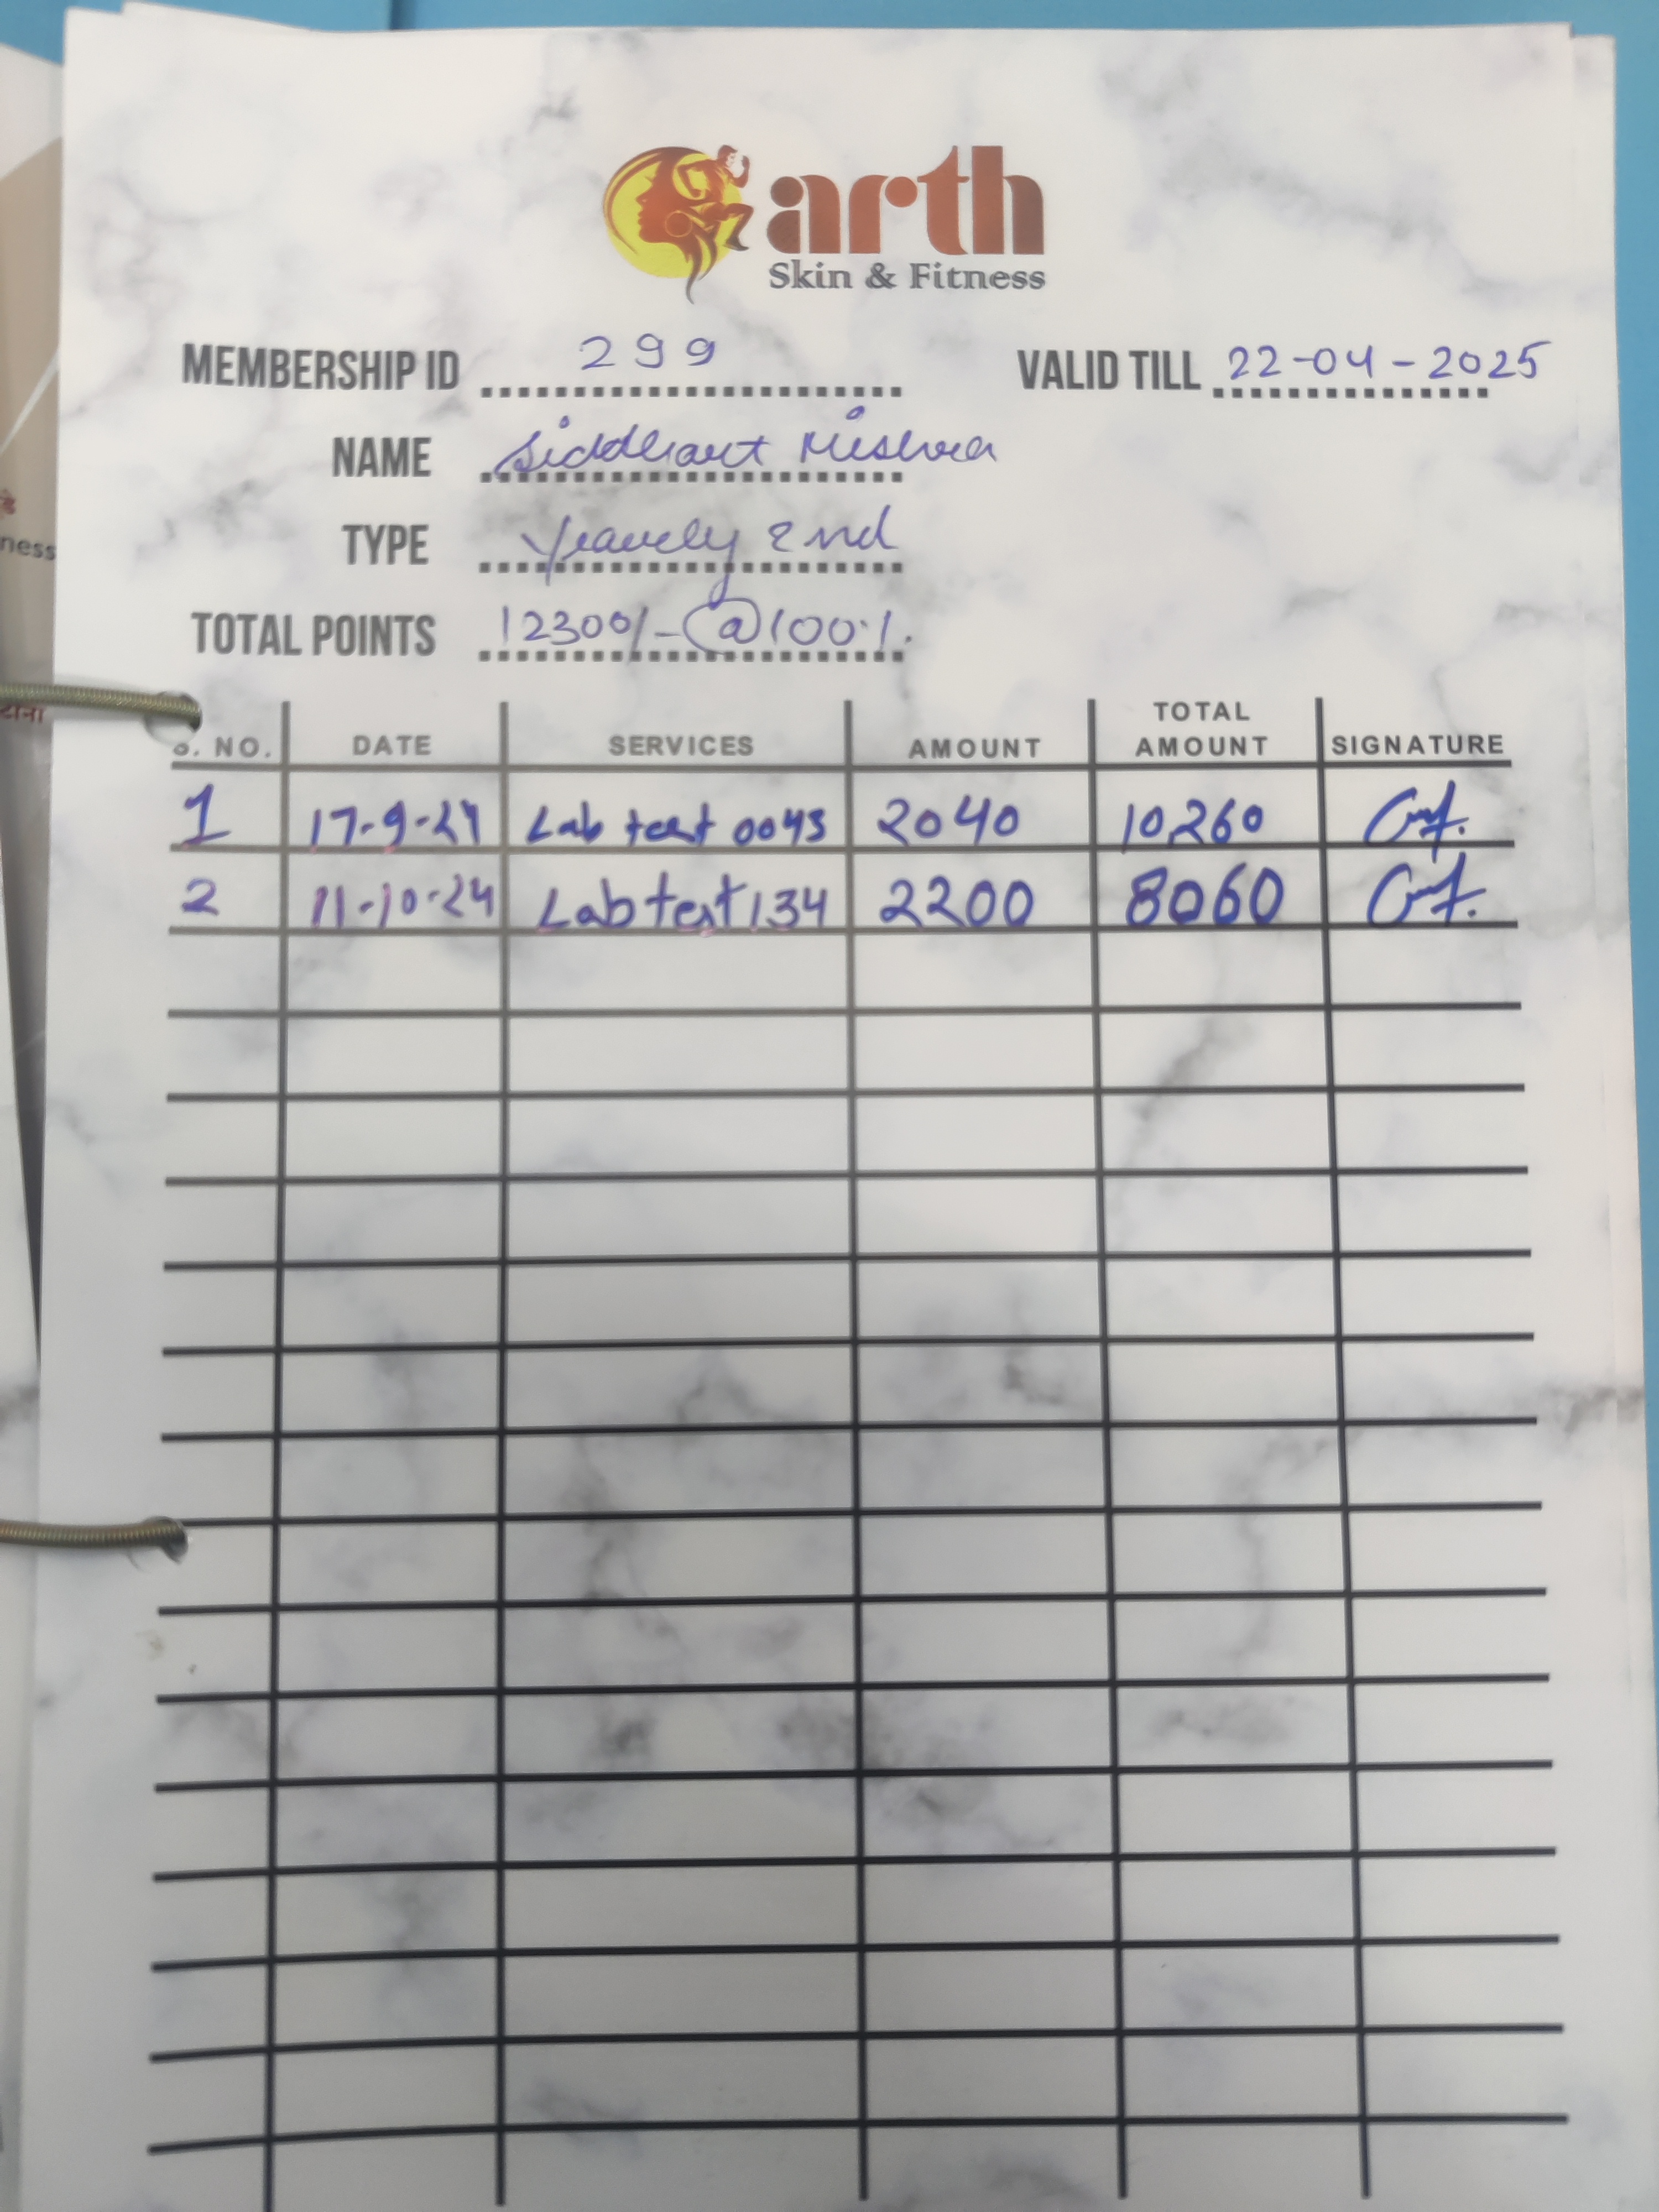 arth
Skin & Fitness
MEMBERSHIP ID 299 VALID TILL 22-04-2025
NAME Siddhant Mishra
TYPE Yearly 2nd
TOTAL POINTS 12300/- @100%.
S. NO. DATE SERVICES AMOUNT TOTAL AMOUNT SIGNATURE
1 17-9-24 Lab test 0045 2040 10,260
2 11-10-24 Lab test 134 2200 8060
ness